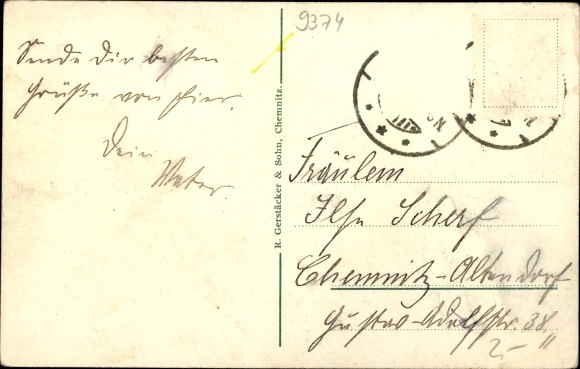 9374
Sende Dir besten
Grüße von hier.
Dein
Vater.
R. Gerstäcker & Sohn, Chemnitz.
Fräulein
Ilse Scherf
Chemnitz-Altendorf
Gustav-Adolfstr. 38 II
2,-